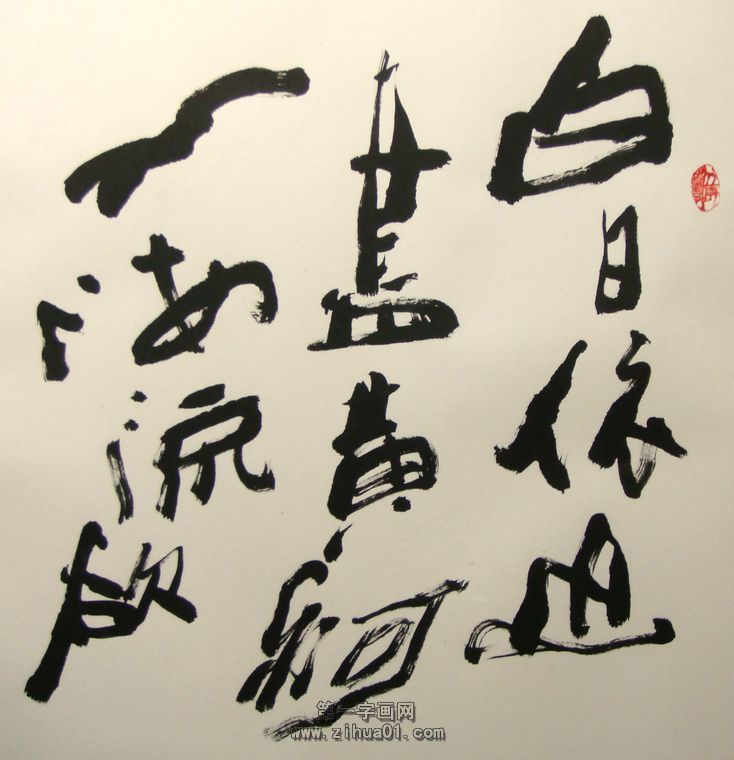 白日依山
盡黃河
入海流
第一字画网
www.zihua01.com